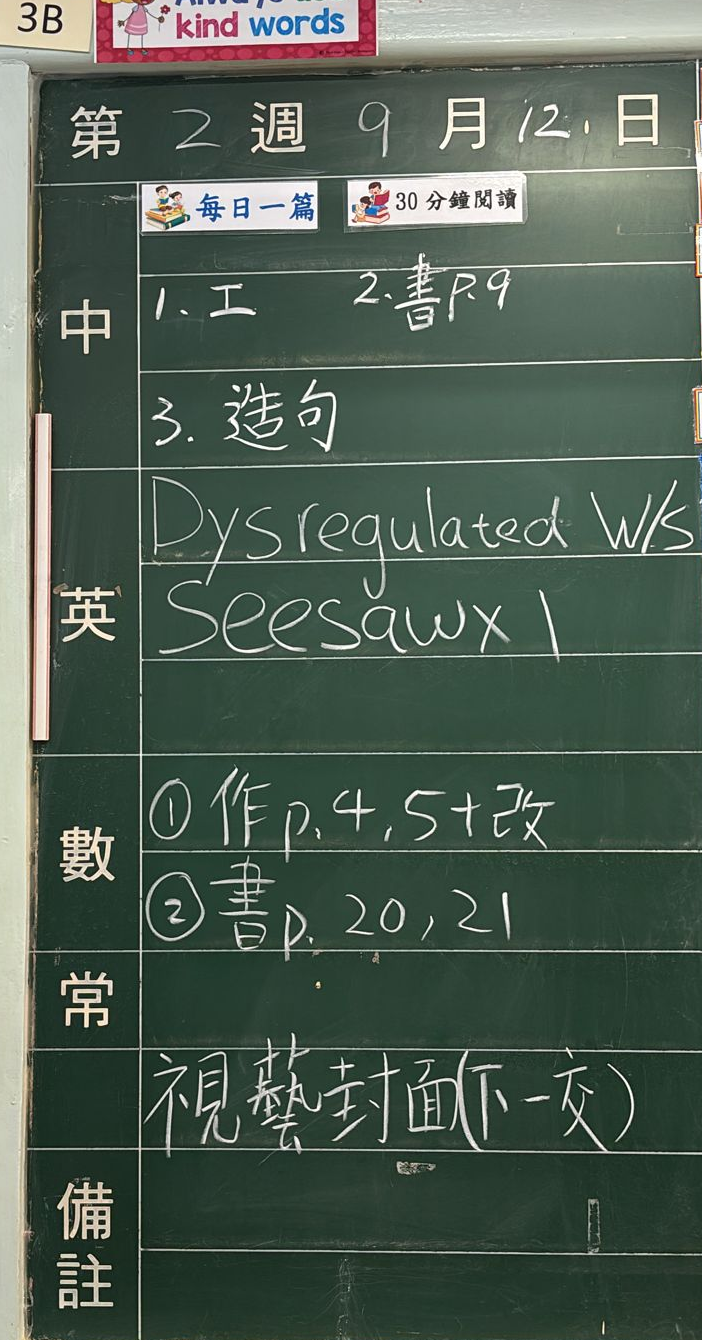 3B
kind words
第 2 週 9 月 12 日
每日一篇 30 分鐘閱讀
中
1. 工 2. 書 p.9
3. 造句
英
Dysregulated W/s
Seesaw x 1
數
① 作 p.4,5+改
② 書 p. 20,21
常
視藝封面(下一交)
備註